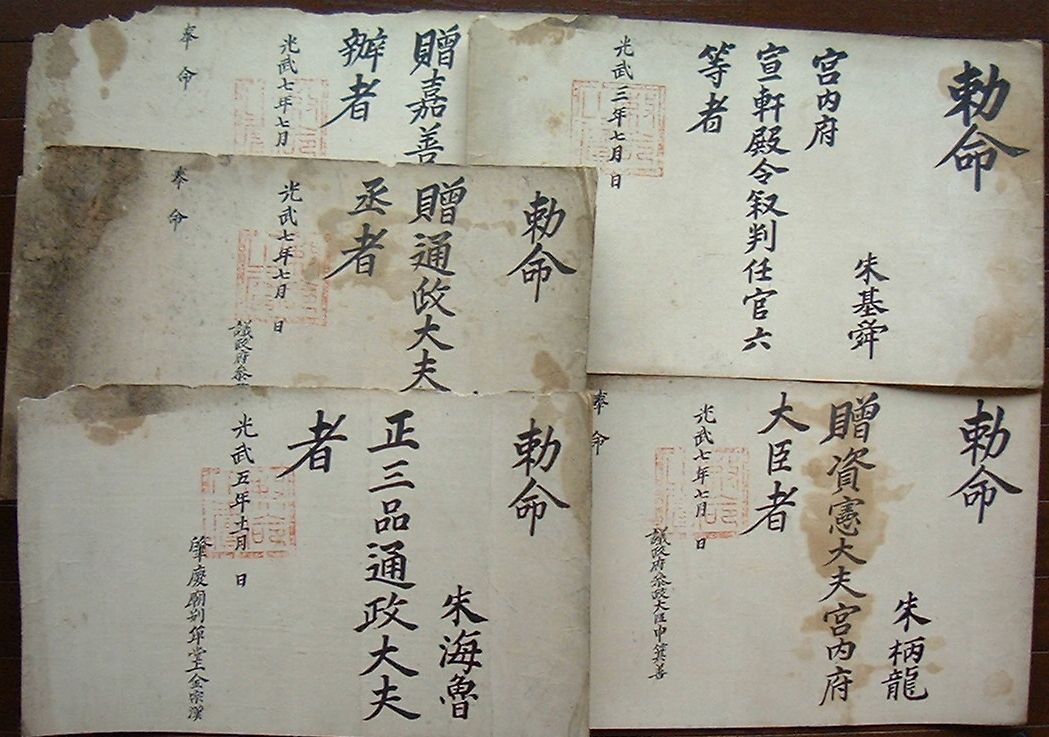 勅命
朱基舜
宮内府
宣軒殿令叙判任官六
等者
光武三年七月 日
贈嘉善
辦者
光武七年七月
奉命
勅命
贈通政大夫
丞者
光武七年七月 日
議政府參
奉命
勅命
朱柄龍
贈資憲大夫宮内府
大臣者
光武七年七月 日
議政府參政大臣申箕善
奉命
勅命
朱海魯
正三品通政大夫
者
光武五年十一月 日
肇慶廟別單堂上金宗漢